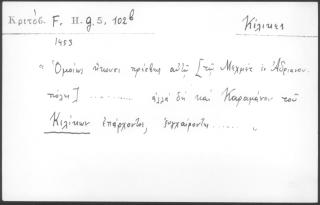 Κριτόβ. F. H. g. 5, 102b Κίλικες
1453
"Ὁμοίως ἥκουσι πρέσβεις αὐτῷ [τῷ Μεχμὲτ ἐν Ἀδριανου-
πόλει] ........... ἀλλὰ δὴ καὶ Καραμάνου τοῦ
Κιλίκων ἐπάρχοντος, συγχαίροντες ...... "